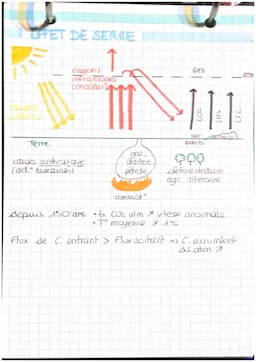 EFFET DE SERRE
rayons
infrarouges
(chaleur)
GES
rayons
CO2
CH4
CFC
Terre
causes anthropique
(act° humaines)
gaz
charbon
pétrole
combust°
déforestation
agr. intensive
depuis 150 ans • tx CO2 atm ↗ vitesse anormale
• T° moyenne ↗ 1°C
Flux de C. entrant > Flux sortant => C. accumulent
ds atm ↗